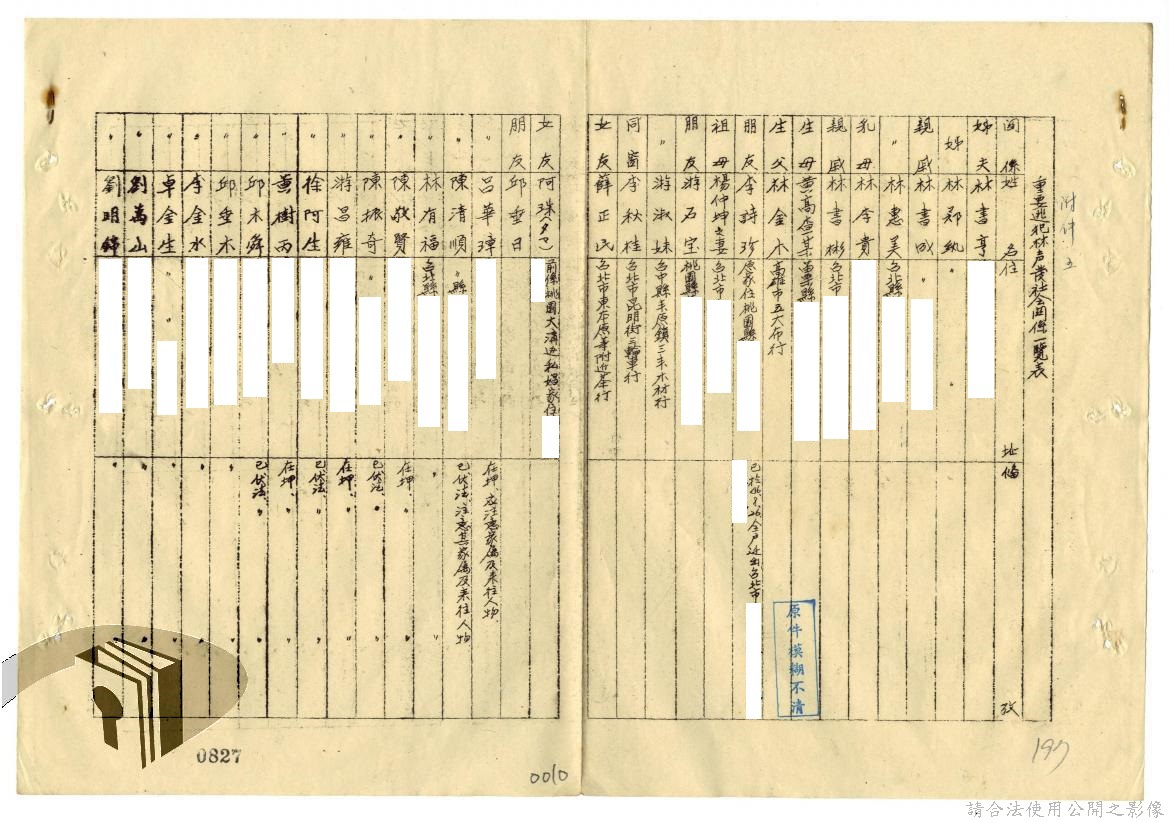 附件五
重要逃犯林声發社会関係一覽表
関係 姓名 住址 備攷
姊夫 林書亭
姊 林郡紈 〃
親戚 林書成 〃
〃 林惠美 台北縣
乳母 林李貴
親戚 林書彬 台北市
生母 黃高 苗栗縣
生父 林金木 高雄市五大布行
朋友 李詩珍 原家住桃園縣 全戶迁出台北市
祖母 楊仲坤之妻 台北市
朋友 游石宝 桃園縣
〃 游淑妹 台中縣丰原鎮三丰木材行
同窗 李秋桂 台北市昆明街三輪車行
女友 薛正氏 台北市東本原寺附近茶行
女友 阿珠(夕マ) 前係桃園大溝边私娼家住
朋友 邱垂日
〃 呂華璋 在押 應注意家屬及来往人物
〃 陳清順 〃縣 已伏法、注意其家屬及来往人物
〃 林有福 台北縣 〃 〃
〃 陳敬賢 在押、〃
〃 陳振奇 〃 已伏法、〃
〃 游昌雍 在押、〃 〃
〃 徐阿生 已伏法、〃 〃
〃 黃樹丙 在押、〃 〃
〃 邱木舜 已伏法、〃 〃
〃 邱垂木 〃 〃
〃 李金水 〃 〃
〃 卓金生 〃 〃 〃
〃 劉萬山 〃 〃
〃 劉明錦 〃
原件模糊不清
197
0010
0827
請合法使用公開之影像